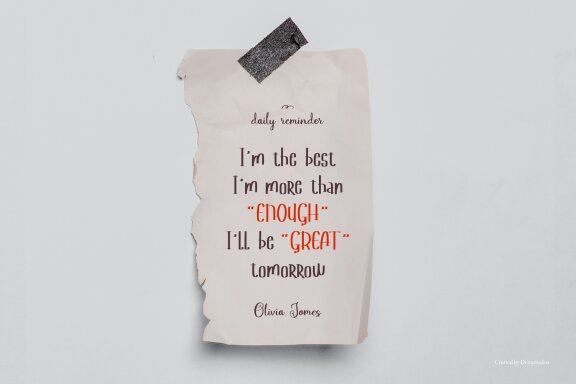 daily reminder
I'm the best
I'm more than
"ENOUGH"
I'll be "GREAT"
tomorrow
Olivia James
Created by